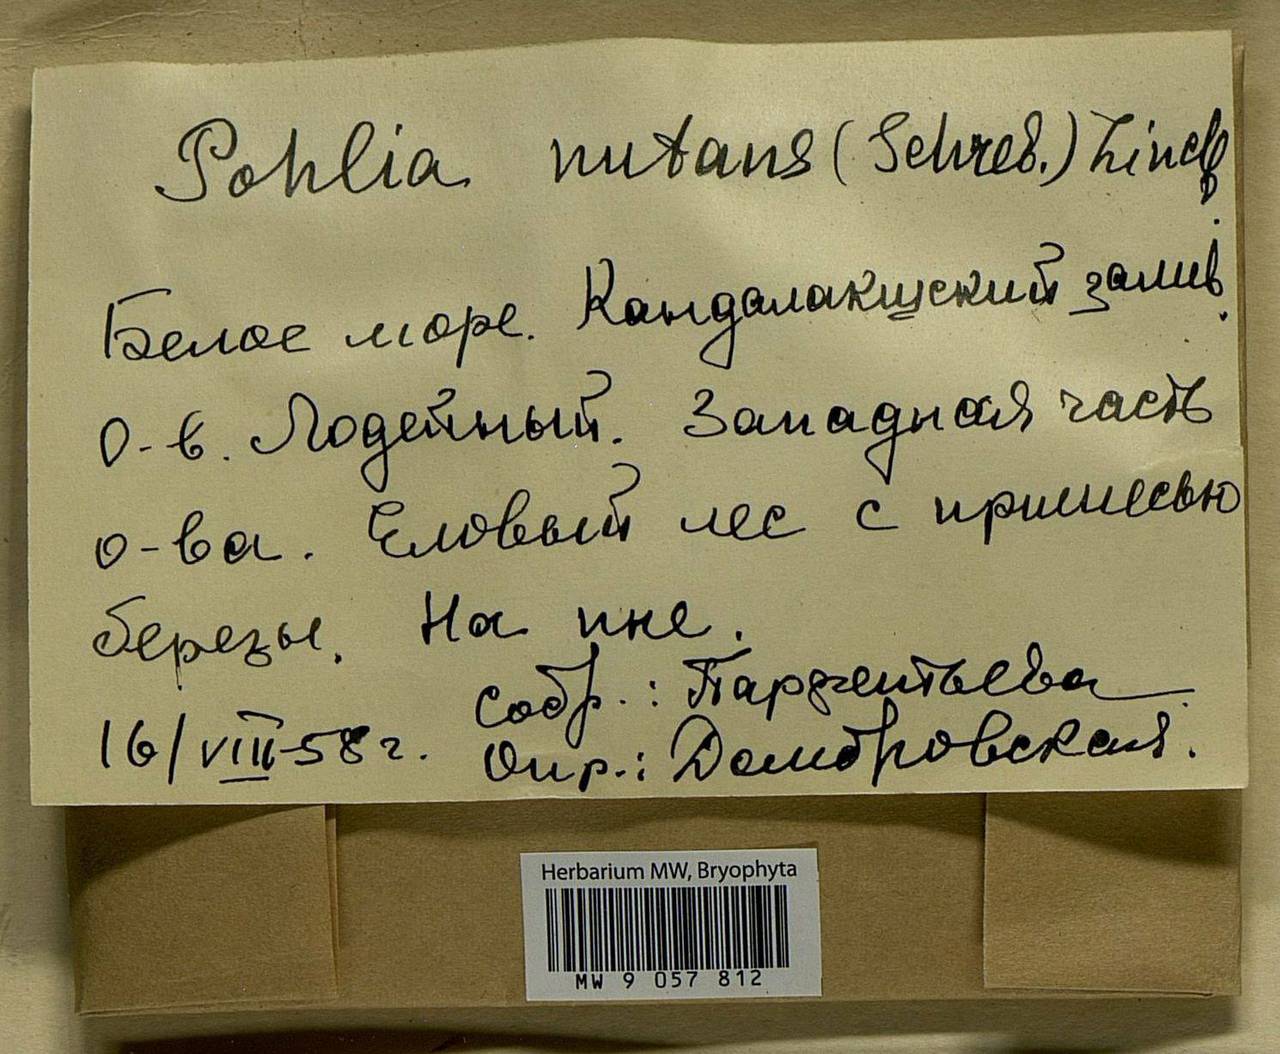 Pohlia nutans (Schreb.) Lindb.
Белое море. Кандалакшский залив.
О-в. Лодейный. Западная часть
о-ва. Еловый лес с примесью
березы. На пне.
Собр.: Парфентьева
16/VIII-58 г. Опр.: Домбровская.
Herbarium MW, Bryophyta
MW 9 057 812